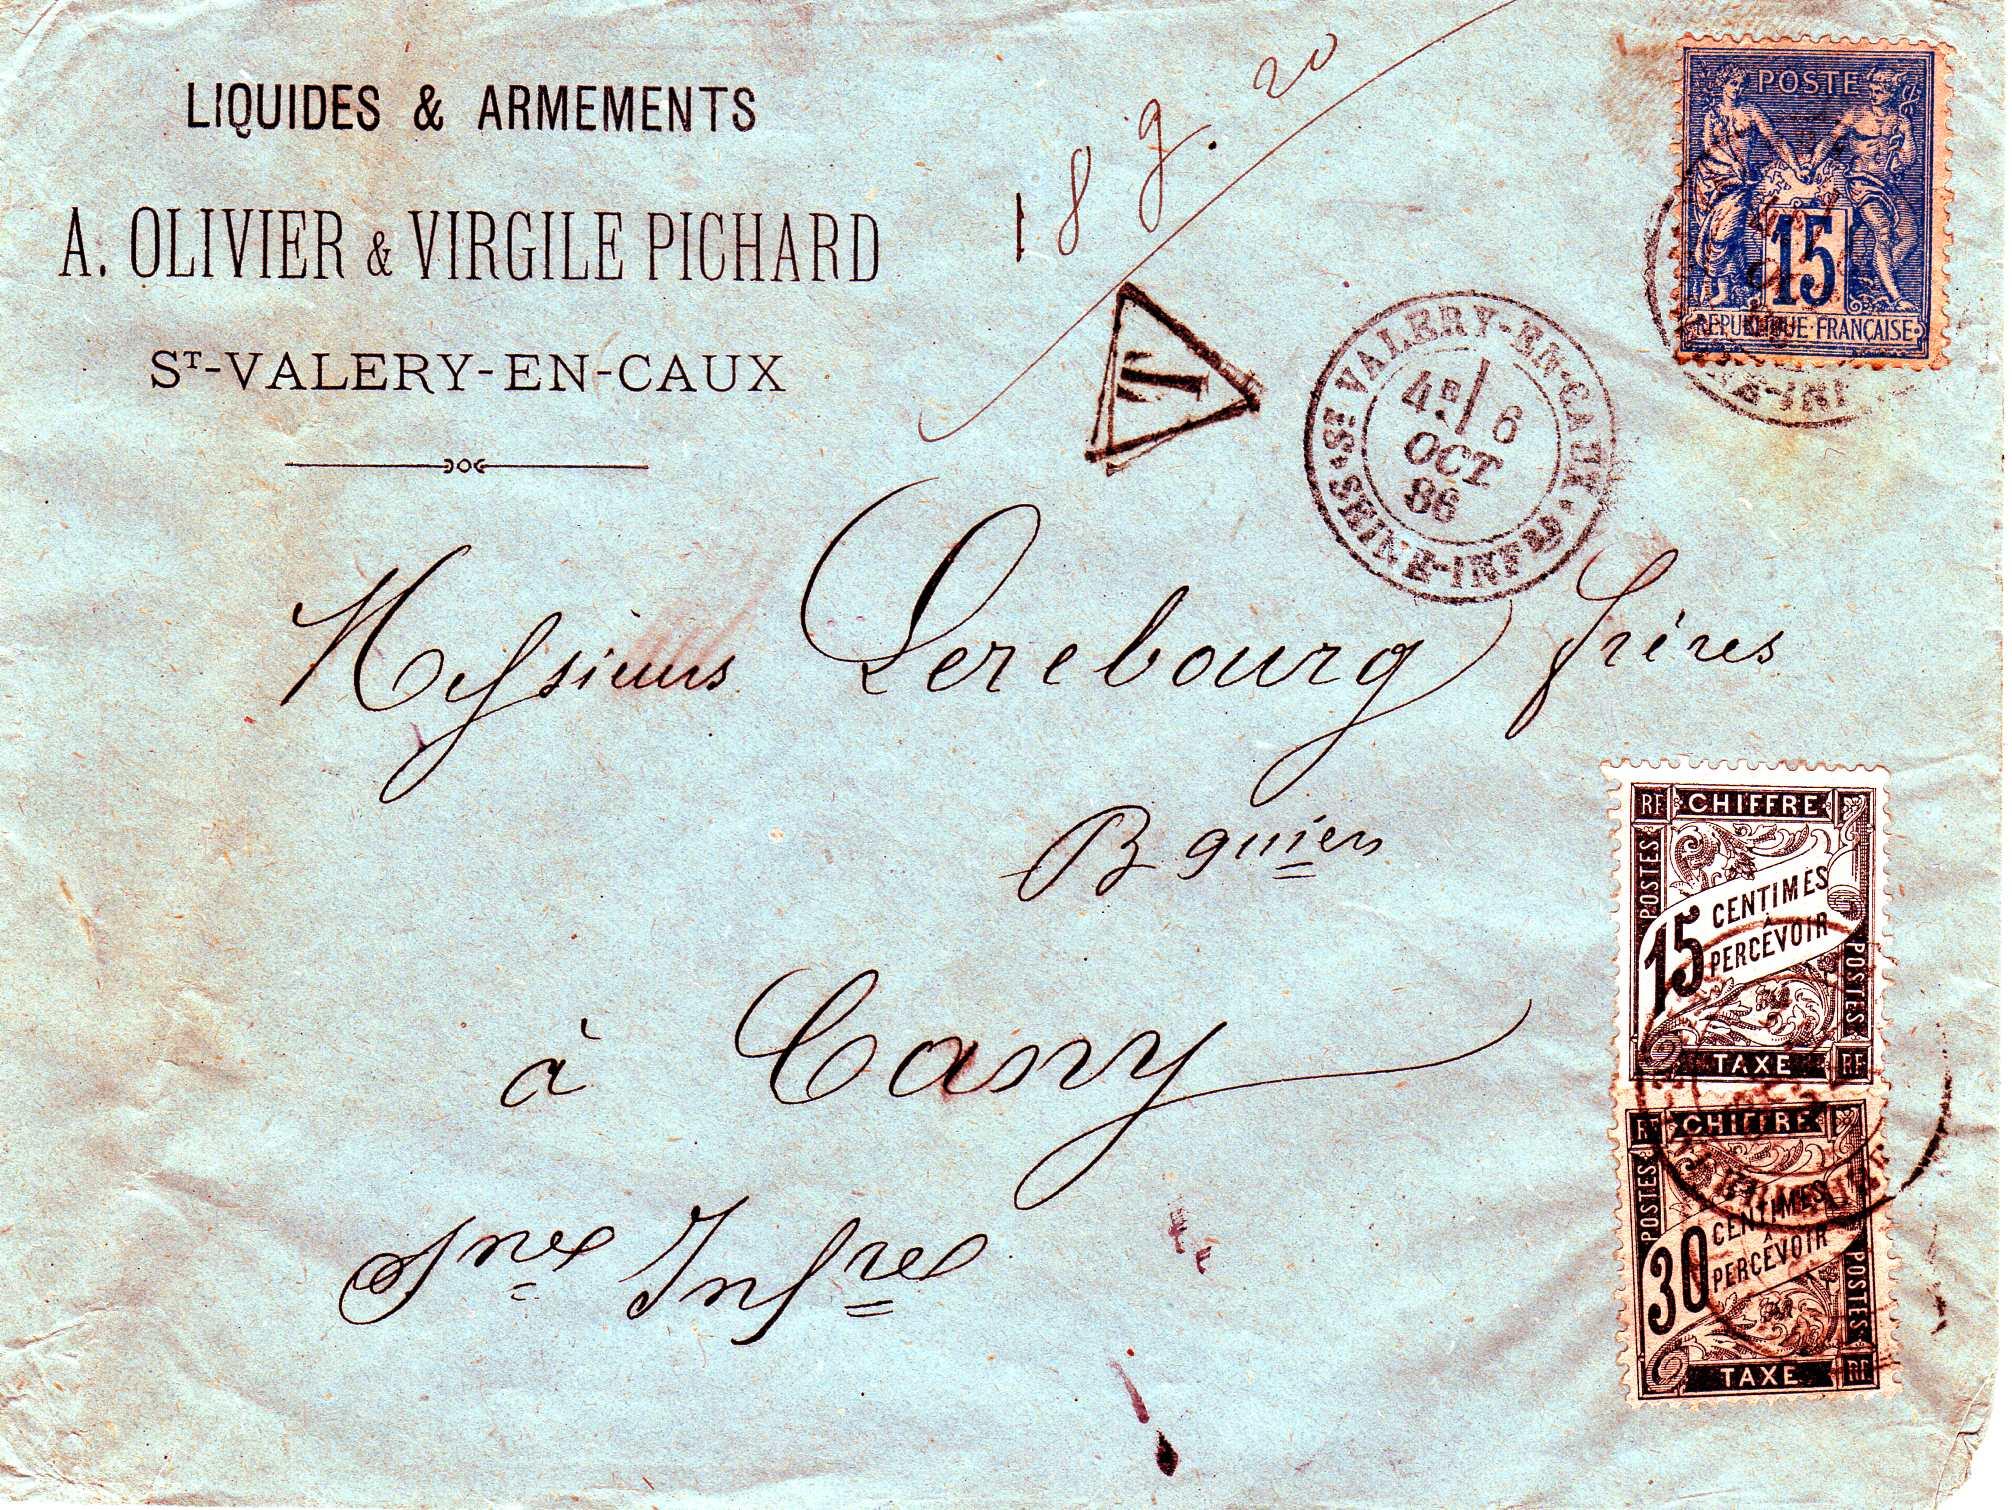 LIQUIDES & ARMEMENTS
A. OLIVIER & VIRGILE PICHARD
ST-VALERY-EN-CAUX
18 g. 20
T
ST VALERY-EN-CAUX
4E 6
OCT
86
SEINE-INFRE
POSTE
15
REPUBLIQUE FRANÇAISE
RE-INF
Messieurs Lerebourg frères
Bquiers
à Cany
Sne Infre
RF CHIFFRE
POSTES
15 CENTIMES
À
PERCEVOIR
POSTES
TAXE RF
RF CHIFFRE
POSTES
30 CENTIMES
À
PERCEVOIR
POSTES
TAXE RF